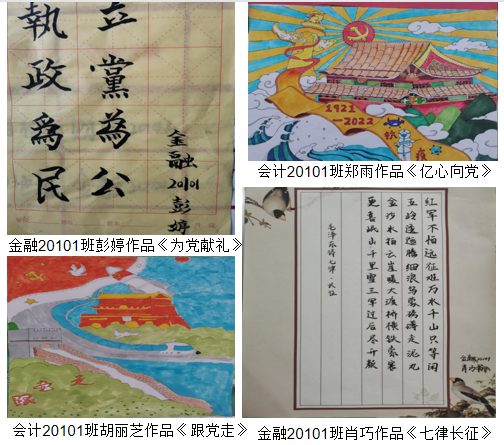 立黨為公
執政爲民
金融20101彭婷
金融20101班彭婷作品《为党献礼》
1921
—2022
抗疫
会计20101班郑雨作品《亿心向党》
跟党走
会计20101班胡丽芝作品《跟党走》
红军不怕远征难万水千山只等闲
五岭逶迤腾细浪乌蒙磅礴走泥丸
金沙水拍云崖暖大渡桥横铁索寒
更喜岷山千里雪三军过后尽开颜
毛泽东诗七律·长征
金融20101班肖巧作品《七律长征》